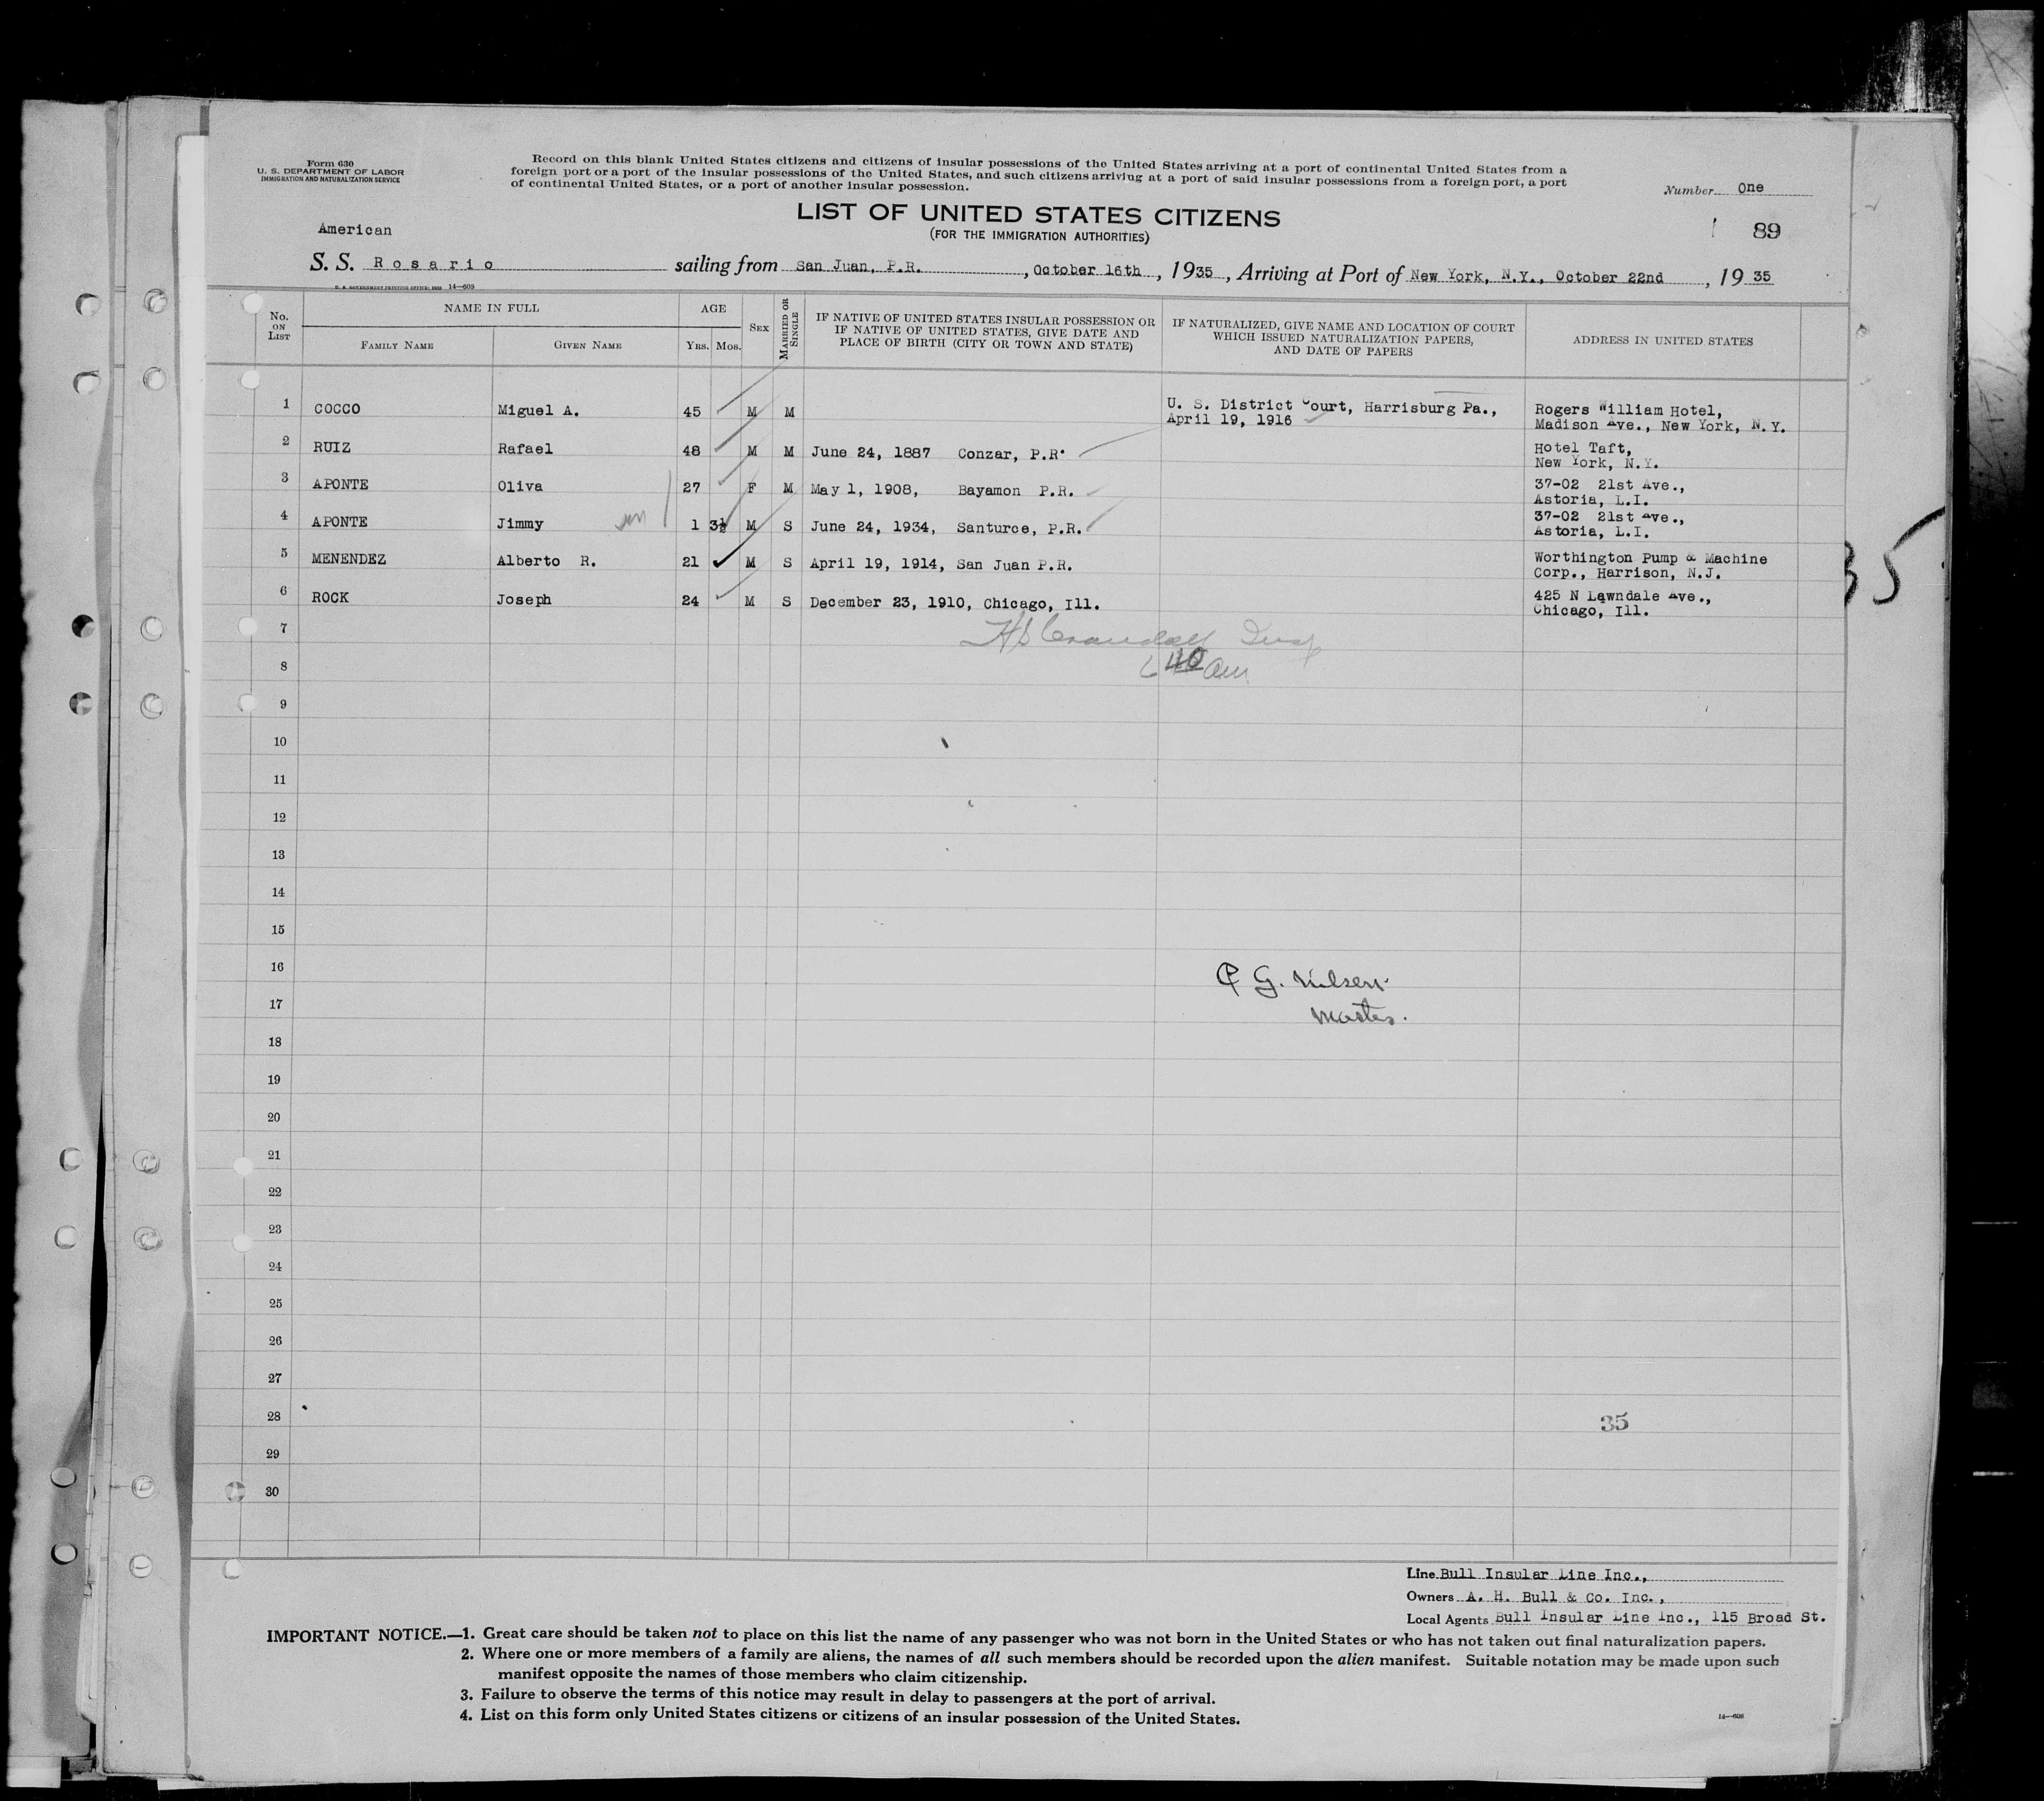 Form 630
U. S. DEPARTMENT OF LABOR
IMMIGRATION AND NATURALIZATION SERVICE
Record on this blank United States citizens and citizens of insular possessions of the United States arriving at a port of continental United States from a
foreign port or a port of the insular possessions of the United States, and such citizens arriving at a port of said insular possessions from a foreign port, a port
of continental United States, or a port of another insular possession.
Number One
LIST OF UNITED STATES CITIZENS
(FOR THE IMMIGRATION AUTHORITIES)
89
American
S. S. Rosario sailing from San Juan, P.R. , October 16th , 1935 , Arriving at Port of New York, N.Y., October 22nd , 1935
U. S. GOVERNMENT PRINTING OFFICE: 1933 14—608
No. ON LIST NAME IN FULL AGE SEX MARRIED OR SINGLE IF NATIVE OF UNITED STATES INSULAR POSSESSION OR IF NATIVE OF UNITED STATES, GIVE DATE AND PLACE OF BIRTH (CITY OR TOWN AND STATE) IF NATURALIZED, GIVE NAME AND LOCATION OF COURT WHICH ISSUED NATURALIZATION PAPERS, AND DATE OF PAPERS ADDRESS IN UNITED STATES
FAMILY NAME GIVEN NAME YRS. MOS.
1 COCCO Miguel A. 45 M M U. S. District Court, Harrisburg Pa., April 19, 1916 Rogers William Hotel, Madison Ave., New York, N.Y.
2 RUIZ Rafael 48 M M June 24, 1887 Conzar, P.R. Hotel Taft, New York, N.Y.
3 APONTE Oliva 27 F M May 1, 1908, Bayamon P.R. 37-02 21st Ave., Astoria, L.I.
4 APONTE Jimmy 1 3½ M S June 24, 1934, Santurce, P.R. 37-02 21st Ave., Astoria, L.I.
5 MENENDEZ Alberto R. 21 M S April 19, 1914, San Juan P.R. Worthington Pump & Machine Corp., Harrison, N.J.
6 ROCK Joseph 24 M S December 23, 1910, Chicago, Ill. 425 N Lawndale Ave., Chicago, Ill.
7 Crandall Insp
8 640 am
9
10
11
12
13
14
15
16 G. Nilsen
17 Master.
18
19
20
21
22
23
24
25
26
27
28 35
29
30
Line Bull Insular Line Inc.,
Owners A. H. Bull & Co. Inc.,
Local Agents Bull Insular Line Inc., 115 Broad St.
IMPORTANT NOTICE.—1. Great care should be taken not to place on this list the name of any passenger who was not born in the United States or who has not taken out final naturalization papers.
2. Where one or more members of a family are aliens, the names of all such members should be recorded upon the alien manifest. Suitable notation may be made upon such
manifest opposite the names of those members who claim citizenship.
3. Failure to observe the terms of this notice may result in delay to passengers at the port of arrival.
4. List on this form only United States citizens or citizens of an insular possession of the United States.
14—608